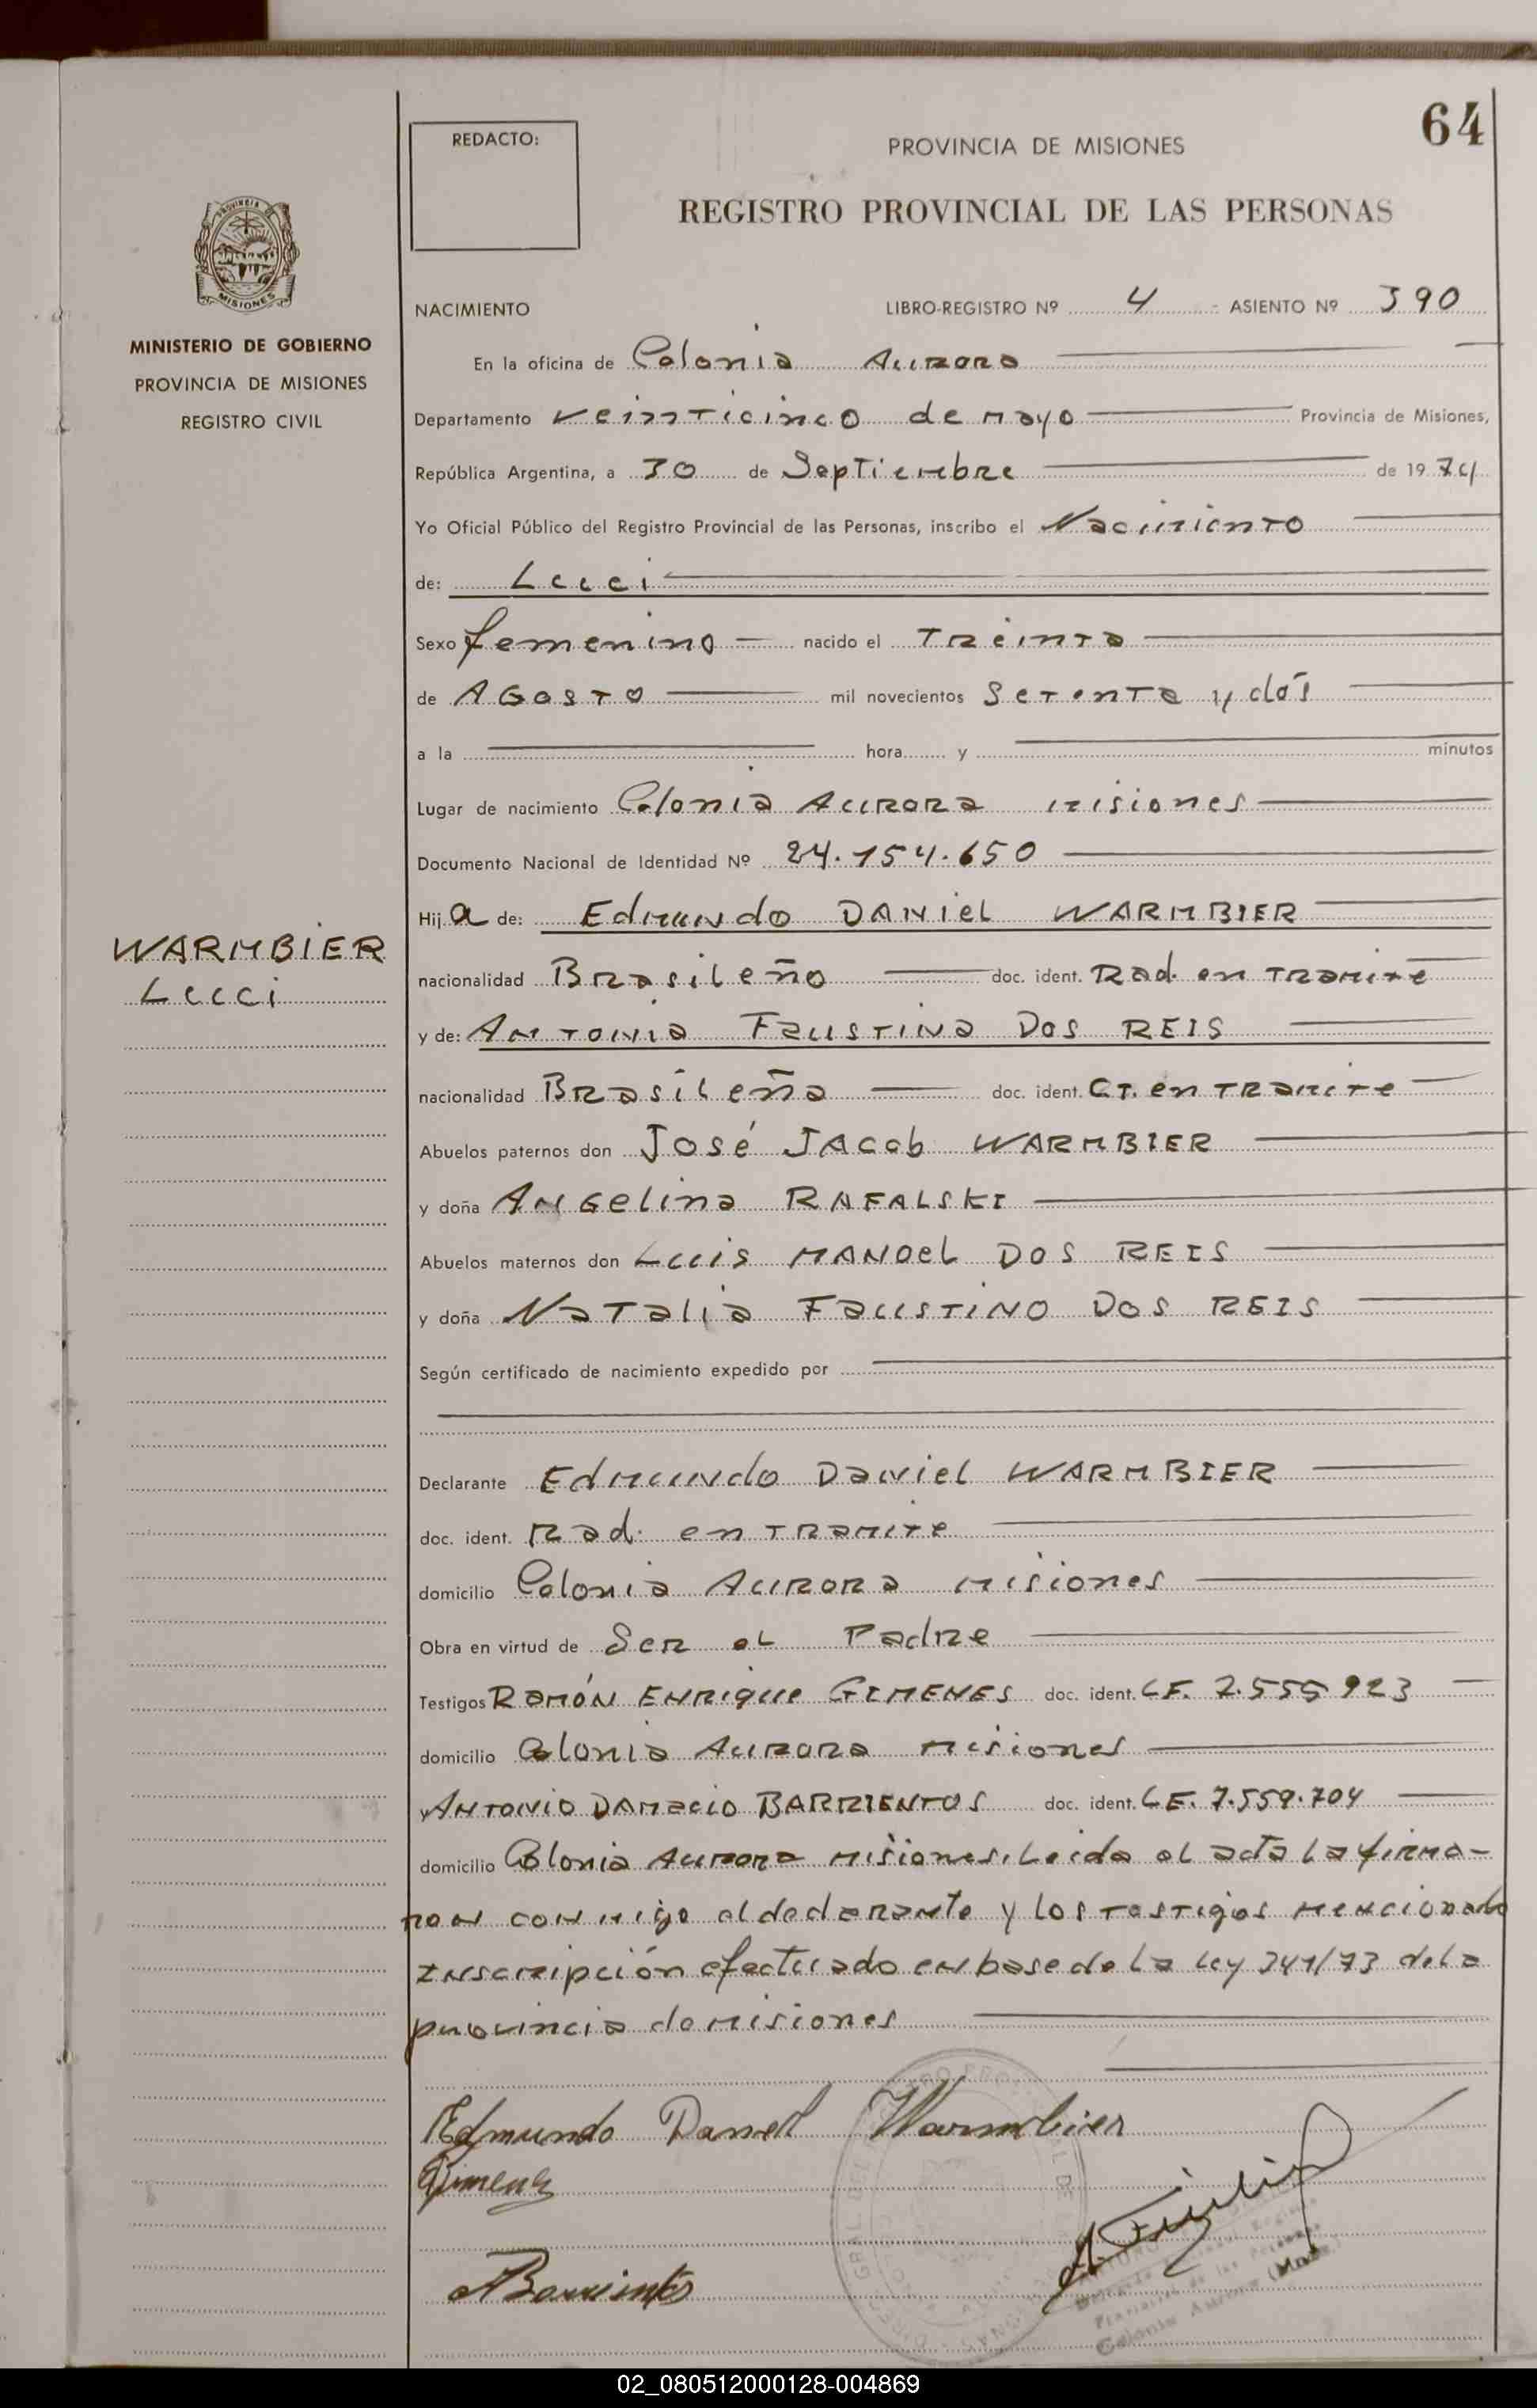 64
REDACTO:
PROVINCIA DE MISIONES
REGISTRO PROVINCIAL DE LAS PERSONAS
PROVINCIA DE
MISIONES
MINISTERIO DE GOBIERNO
PROVINCIA DE MISIONES
REGISTRO CIVIL
NACIMIENTO LIBRO-REGISTRO Nº 4 - ASIENTO Nº 390
En la oficina de Colonia Aurora
Departamento veinticinco de mayo Provincia de Misiones,
República Argentina, a 30 de Septiembre de 1974
Yo Oficial Público del Registro Provincial de las Personas, inscribo el Nacimiento
de: Luci
Sexo femenino nacido el Treinta
de AGOSTO mil novecientos Setenta y dós
a la hora y minutos
Lugar de nacimiento Colonia Aurora misiones
Documento Nacional de Identidad Nº 24.154.650
Hija de: Edmundo DANiel WARMBIER
WARMBIER
Luci
nacionalidad Brasileño doc. ident. Rad. en Tramite
y de: Antonia Faustina Dos REIS
nacionalidad Brasileña doc. ident. CI. en Tramite
Abuelos paternos don José JAcob WARMBIER
y doña Angelina RAFALSKI
Abuelos maternos don Luis MANOel DOS REIS
y doña Natalia FaustiNO DOS REIS
Según certificado de nacimiento expedido por
Declarante Edmundo Daniel WARMBIER
doc. ident. Rad. en Tramite
domicilio Colonia Aurora misiones
Obra en virtud de Ser el Padre
Testigos Ramón Enrique GIMENES doc. ident. LE. 7.555.923
domicilio Colonia Aurora misiones
y Antonio Damacio BARRIENTOS doc. ident. LE. 7.559.704
domicilio Colonia Aurora misiones. Leida el acta la firma-
ron conmigo el declarante y los testigos mencionado
Inscripción efectuado en base de la ley 341/73 de la
provincia de misiones
Edmundo Daniel Warmbier
Gimenes
ABarrientos
Colonia Aurora (Mnes.)
02_080512000128-004869